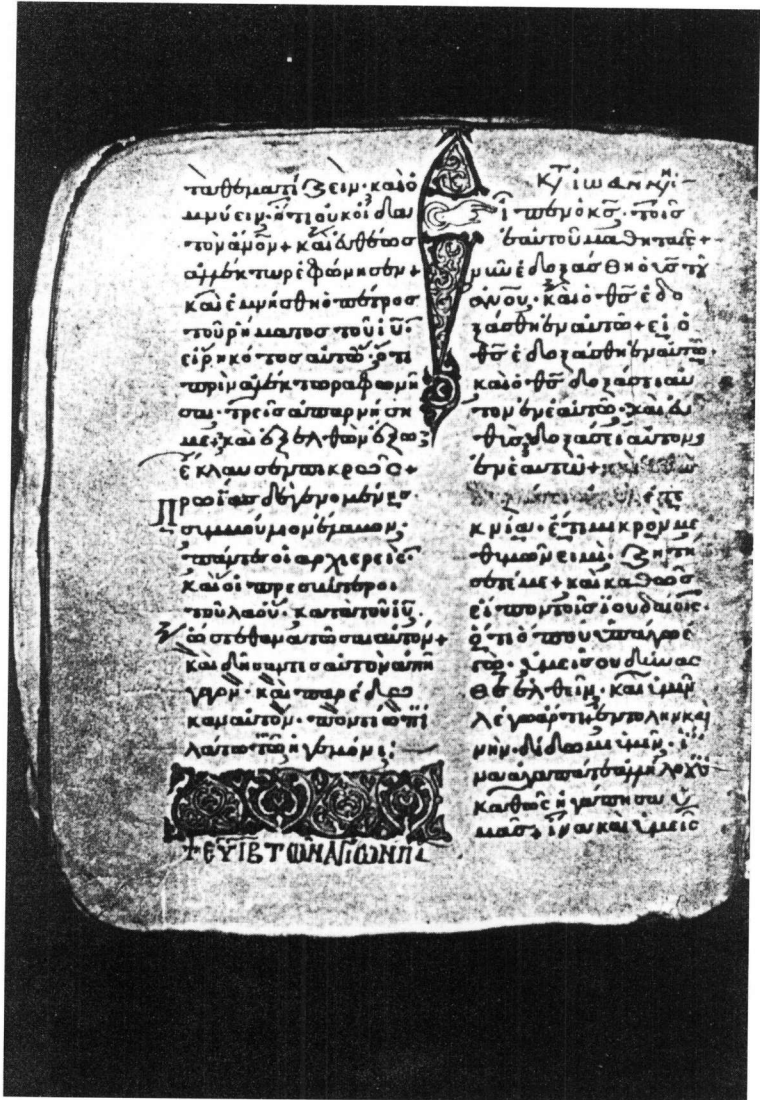 ταθεματίζειν· καὶ ὀ
μνύειν· ὅτι οὐκ οἶδα
τὸν ἄνον+ καὶ εὐθέως
ἀλέκτωρ ἐφώνησεν+
καὶ ἐμνήσθη ὁ πέτρος
τοῦ ῥήματος τοῦ ἰῦ·
εἰρηκότος αὐτῶ· ὅτι
πρὶν ἀλέκτορα φωνῆ
σαι· τρεῖς ἀπαρνήση
με· καὶ ἐξελθὼν ἔξω
ἔκλαυσεν πικρῶς+
Πρωΐας δὲ γενομένης·
πάντες οἱ ἀρχιερεῖς·
καὶ οἱ πρεσβύτεροι
τοῦ λαοῦ· κατὰ τοῦ ἰῦ·
ὥστε θανατῶσαι αὐτόν+
καὶ δήσαντες αὐτὸν ἀπή
γαγον· καὶ παρέδω
καν αὐτὸν· ποντίω πι
λάτω τῶ ἡγεμόνι:
+ΕΥ ΙΒ ΤΩΝ ΑΓΙΩΝ ΠΑ
Κτ ἰωάννην
Εἶπεν ὁ κς· τοῖς
ἑαυτοῦ μαθηταῖς+
νῦν ἐδοξάσθη ὁ ὑς τοῦ
ἀνου· καὶ ὁ θς ἐδο
ξάσθη ἐν αὐτῶ+ εἰ ὁ
θς ἐδοξάσθη ἐν αὐτῶ·
καὶ ὁ θς δοξάσει αὐ
τὸν ἐν ἑαυτῶ· καὶ εὐ
θὺς δοξάσει αὐτὸν
ἐν ἑαυτῶ+
κνία· ἔτι μικρὸν με
θ ὑμῶν εἰμὶ· ζητή
σετέ με+ καὶ καθὼς
εἶπον τοῖς ἰουδαίοις·
ὅτι ὅπου ὑπάγω ἐ
γὼ· ὑμεῖς οὐ δύνασ
θε ἐλθεῖν· καὶ ὑμῖν
λέγω ἄρτι+ ἐντολὴν και
νὴν· δίδωμι ὑμῖν· ἵ
να ἀγαπᾶτε ἀλλήλους
καθὼς ἠγάπησα ὑ
μᾶς+ ἵνα καὶ ὑμεῖς